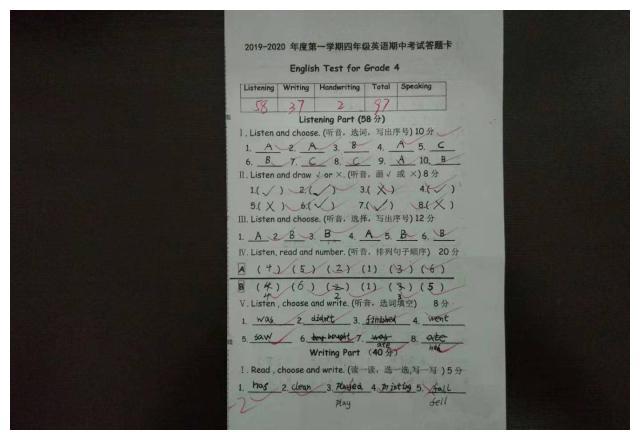 2019-2020 年度第一学期四年级英语期中考试答题卡
English Test for Grade 4
Listening Writing Handwriting Total Speaking
58 37 2 97
Listening Part (58 分)
I . Listen and choose. (听音，选词，写出序号) 10 分
1. A 2. A 3. B 4. A 5. C
6. B 7. C 8. C 9. A 10. B
II . Listen and draw √ or ×. (听音，画 √ 或 ×) 8 分
1.( √ ) 2.( √ ) 3.( X ) 4.( √ )
5.( X ) 6.( √ ) 7.( √ ) 8.( X )
III. Listen and choose. (听音，选择，写出序号) 12 分
1. A 2. B 3. B 4. A 5. B 6. B
IV. Listen, read and number. (听音，排列句子顺序) 20 分
A ( 4 ) ( 5 ) ( 2 ) (1) ( 3 ) ( 6 )
B ( 4 ) ( 6 ) ( 2 ) (1) ( 3 ) ( 5 )
4 2 3
V. Listen , choose and write. (听音，选词填空) 8 分
1. was 2. didn't 3. finished 4. went
5. saw 6. bought 7. was 8. ate
ate had
Writing Part (40 分)
I . Read , choose and write. (读一读，选一选,写一写 ) 5 分
1. has 2. clean 3. Played 4. printing 5. fall
-2 play fell